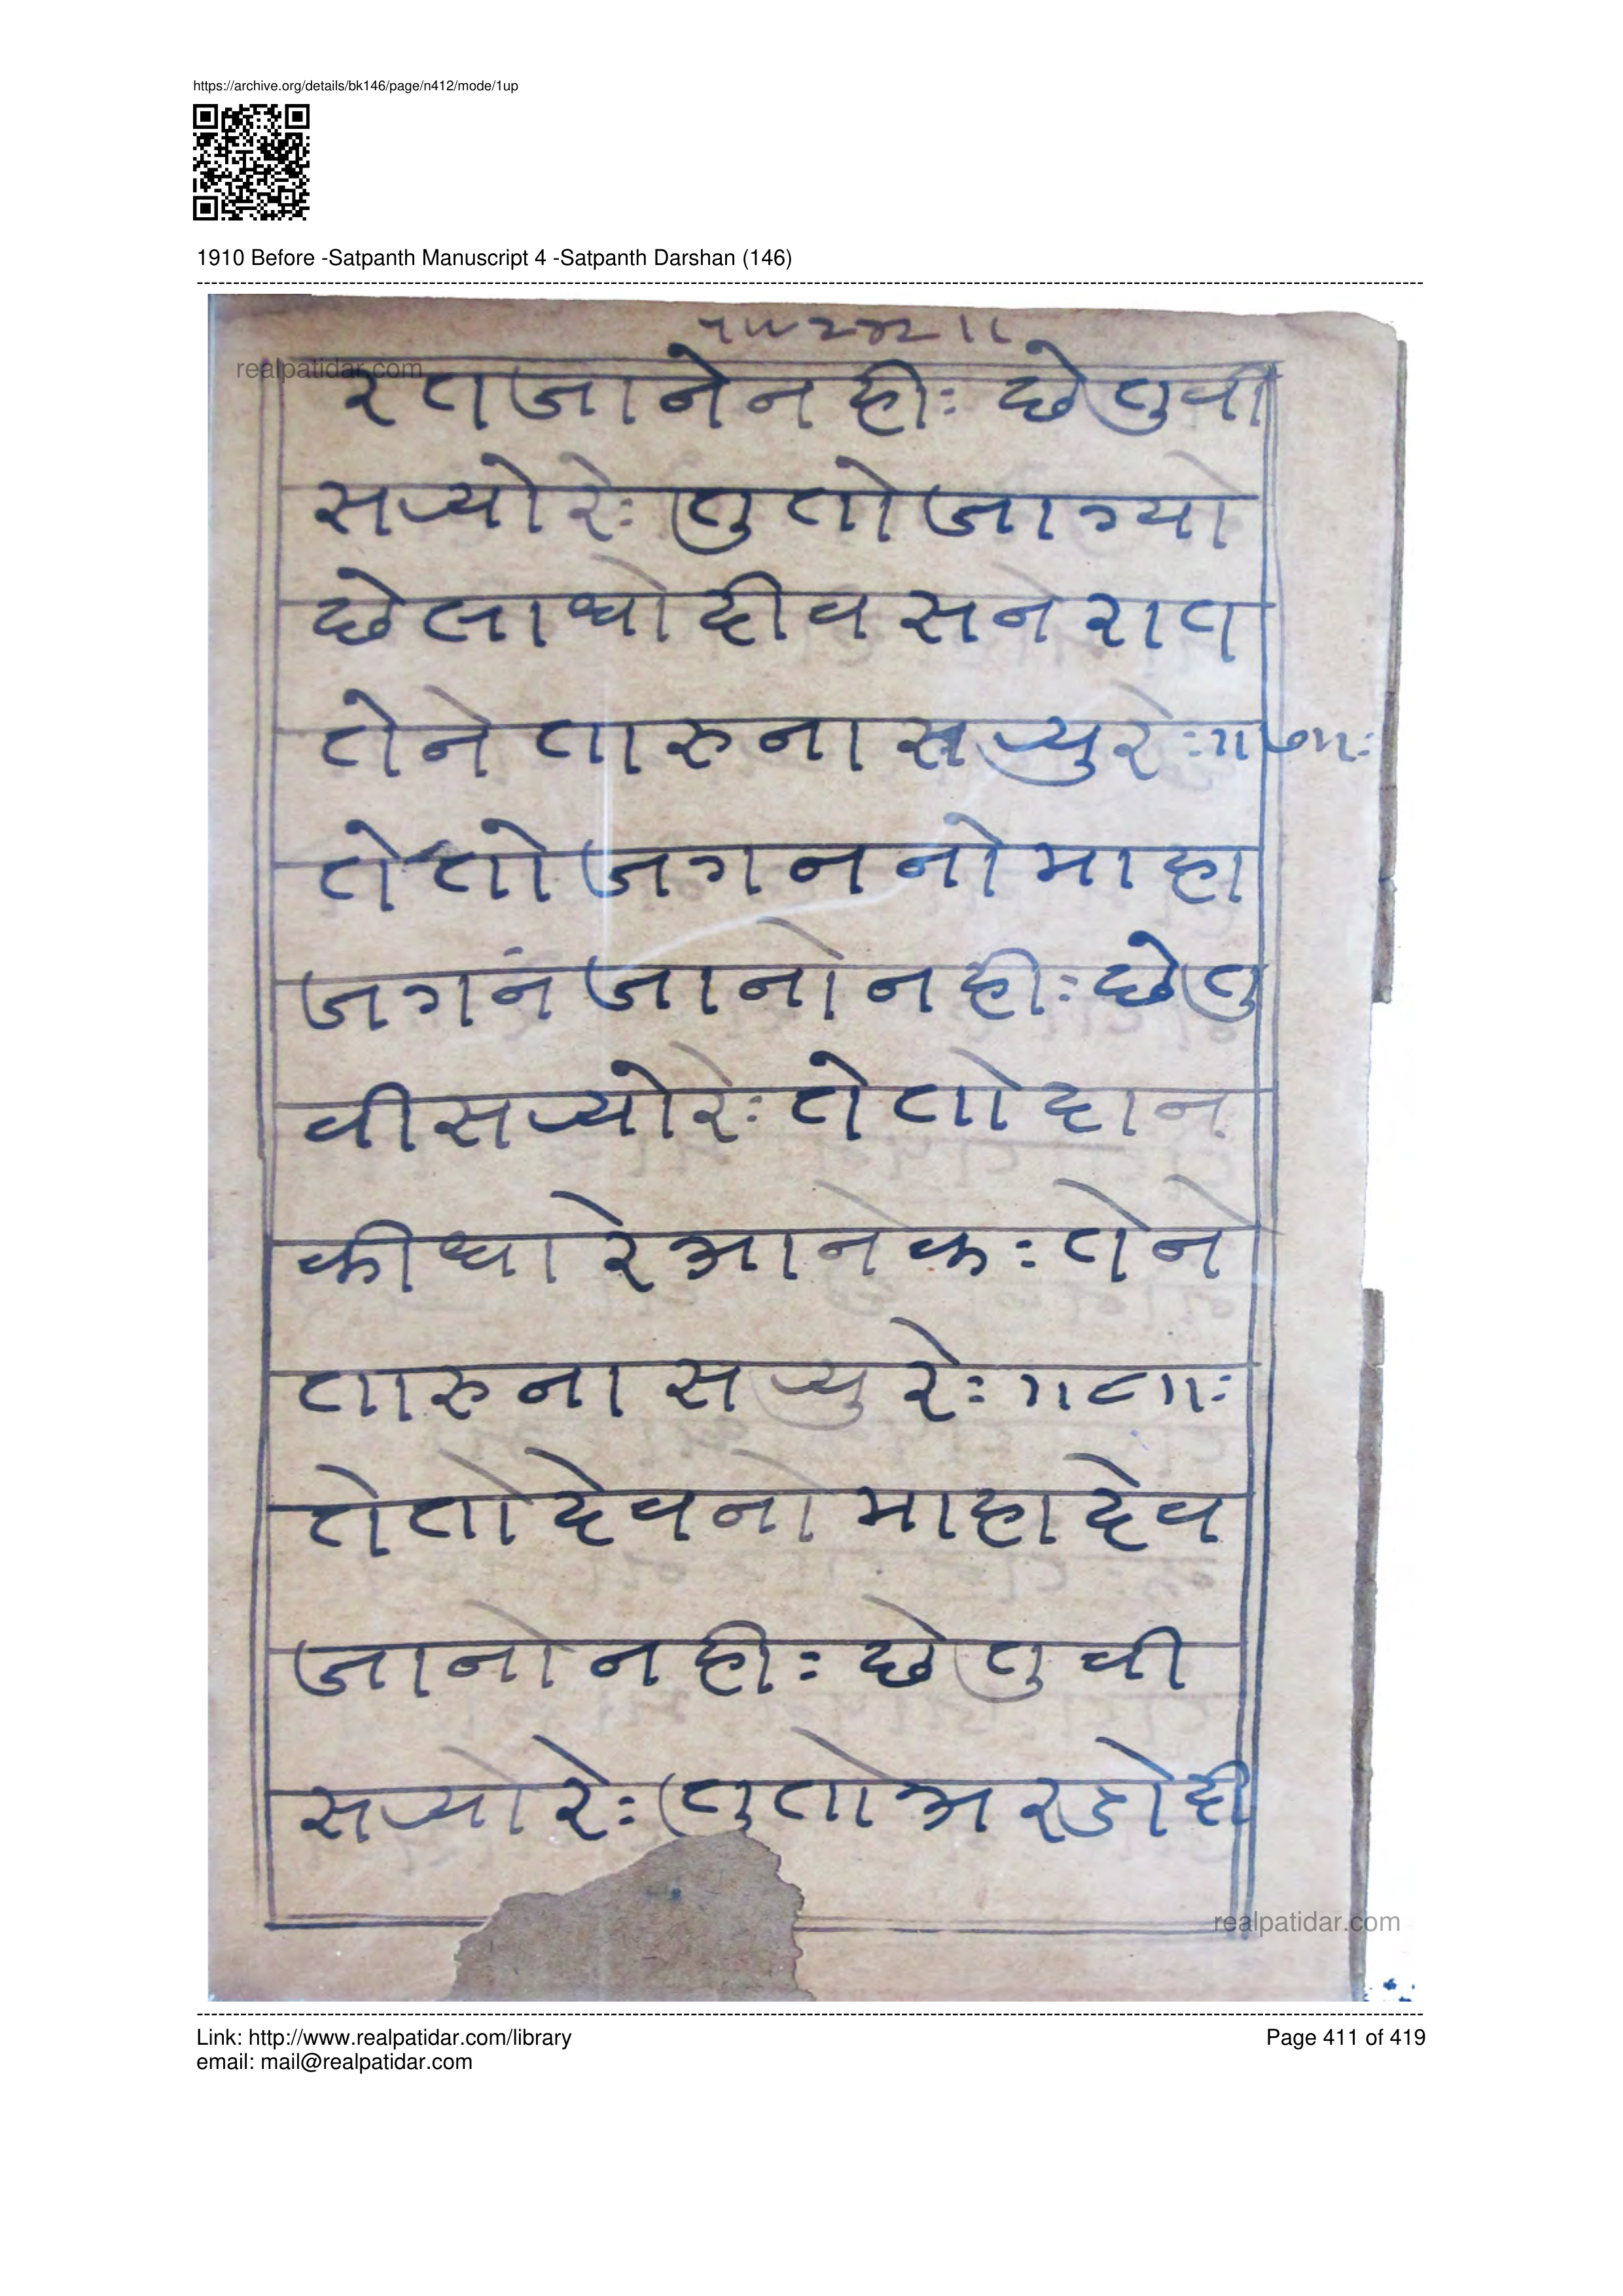 https://archive.org/details/bk146/page/n412/mode/1up
1910 Before -Satpanth Manuscript 4 -Satpanth Darshan (146)
realpatidar.com
रतजानेनहीः छेतुवी
सर्‍योरेः तुतोजाग्यो
छेलाधोदीवसनेरात
तेनेतारुनासर्‍युरेः॥७॥ः
तेतोजगननोमाहा
जगनंजानोनहीः छेतु
वीसर्‍योरेः तेतोदान
कीधारेआनेकः तेने
तारुनासर्‍युरेः॥८॥ः
तेतोदेवनोमाहादेव
जानोनहीः छेतुवी
सर्‍योरेः तुतोअरडोदी
realpatidar.com
Link: http://www.realpatidar.com/library
Page 411 of 419
email: mail@realpatidar.com